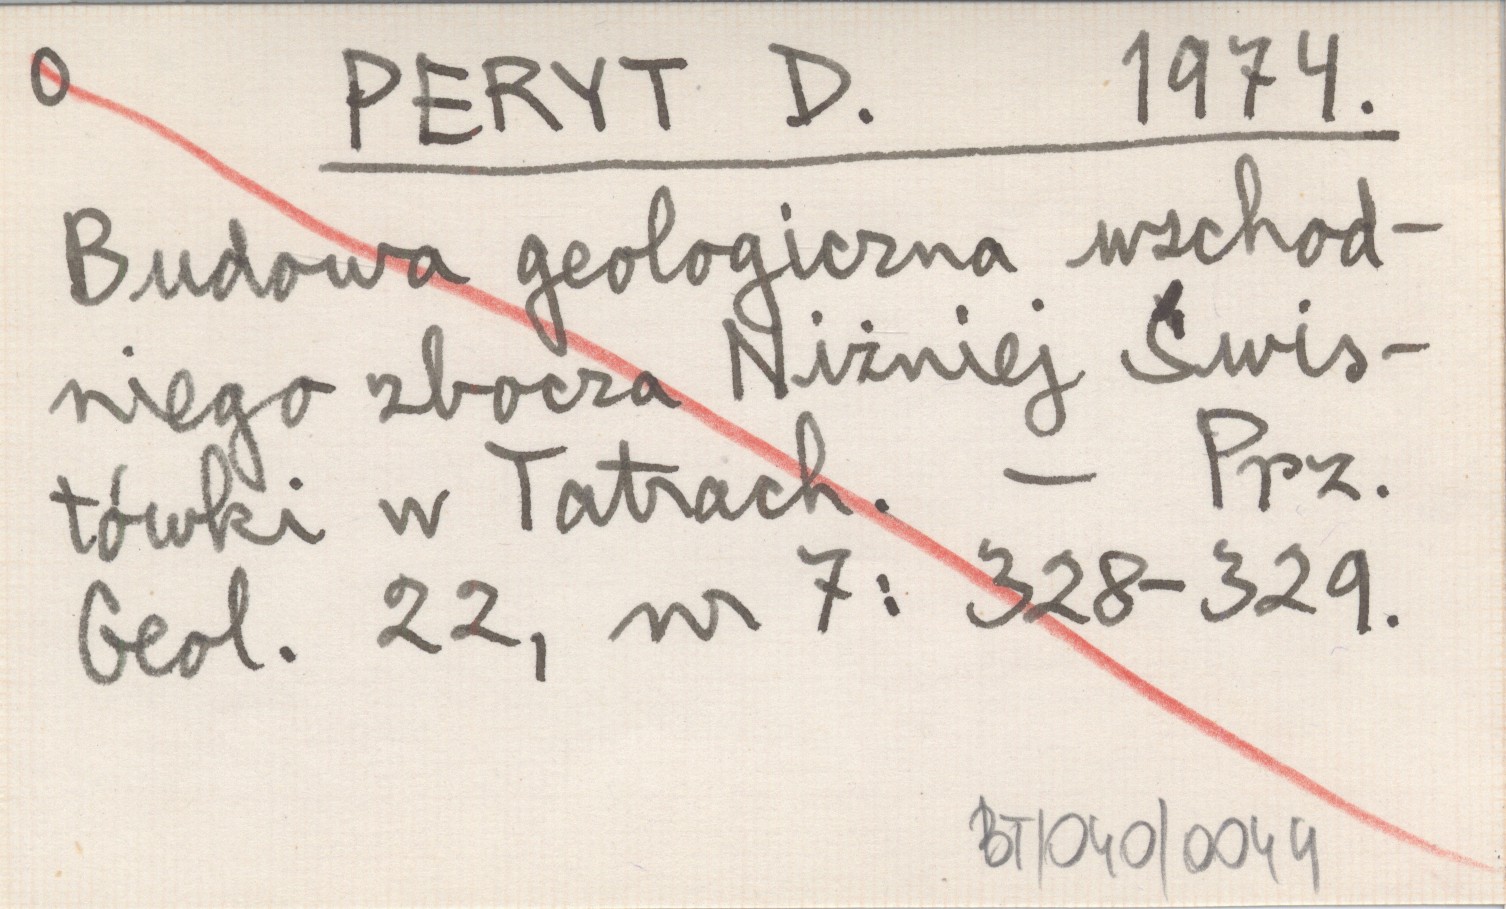 O PERYT D. 1974.
Budowa geologiczna wschod-
niego zbocza Niżniej Świs-
tówki w Tatrach. — Prz.
Geol. 22, nr 7: 328-329.
BT/040/0044